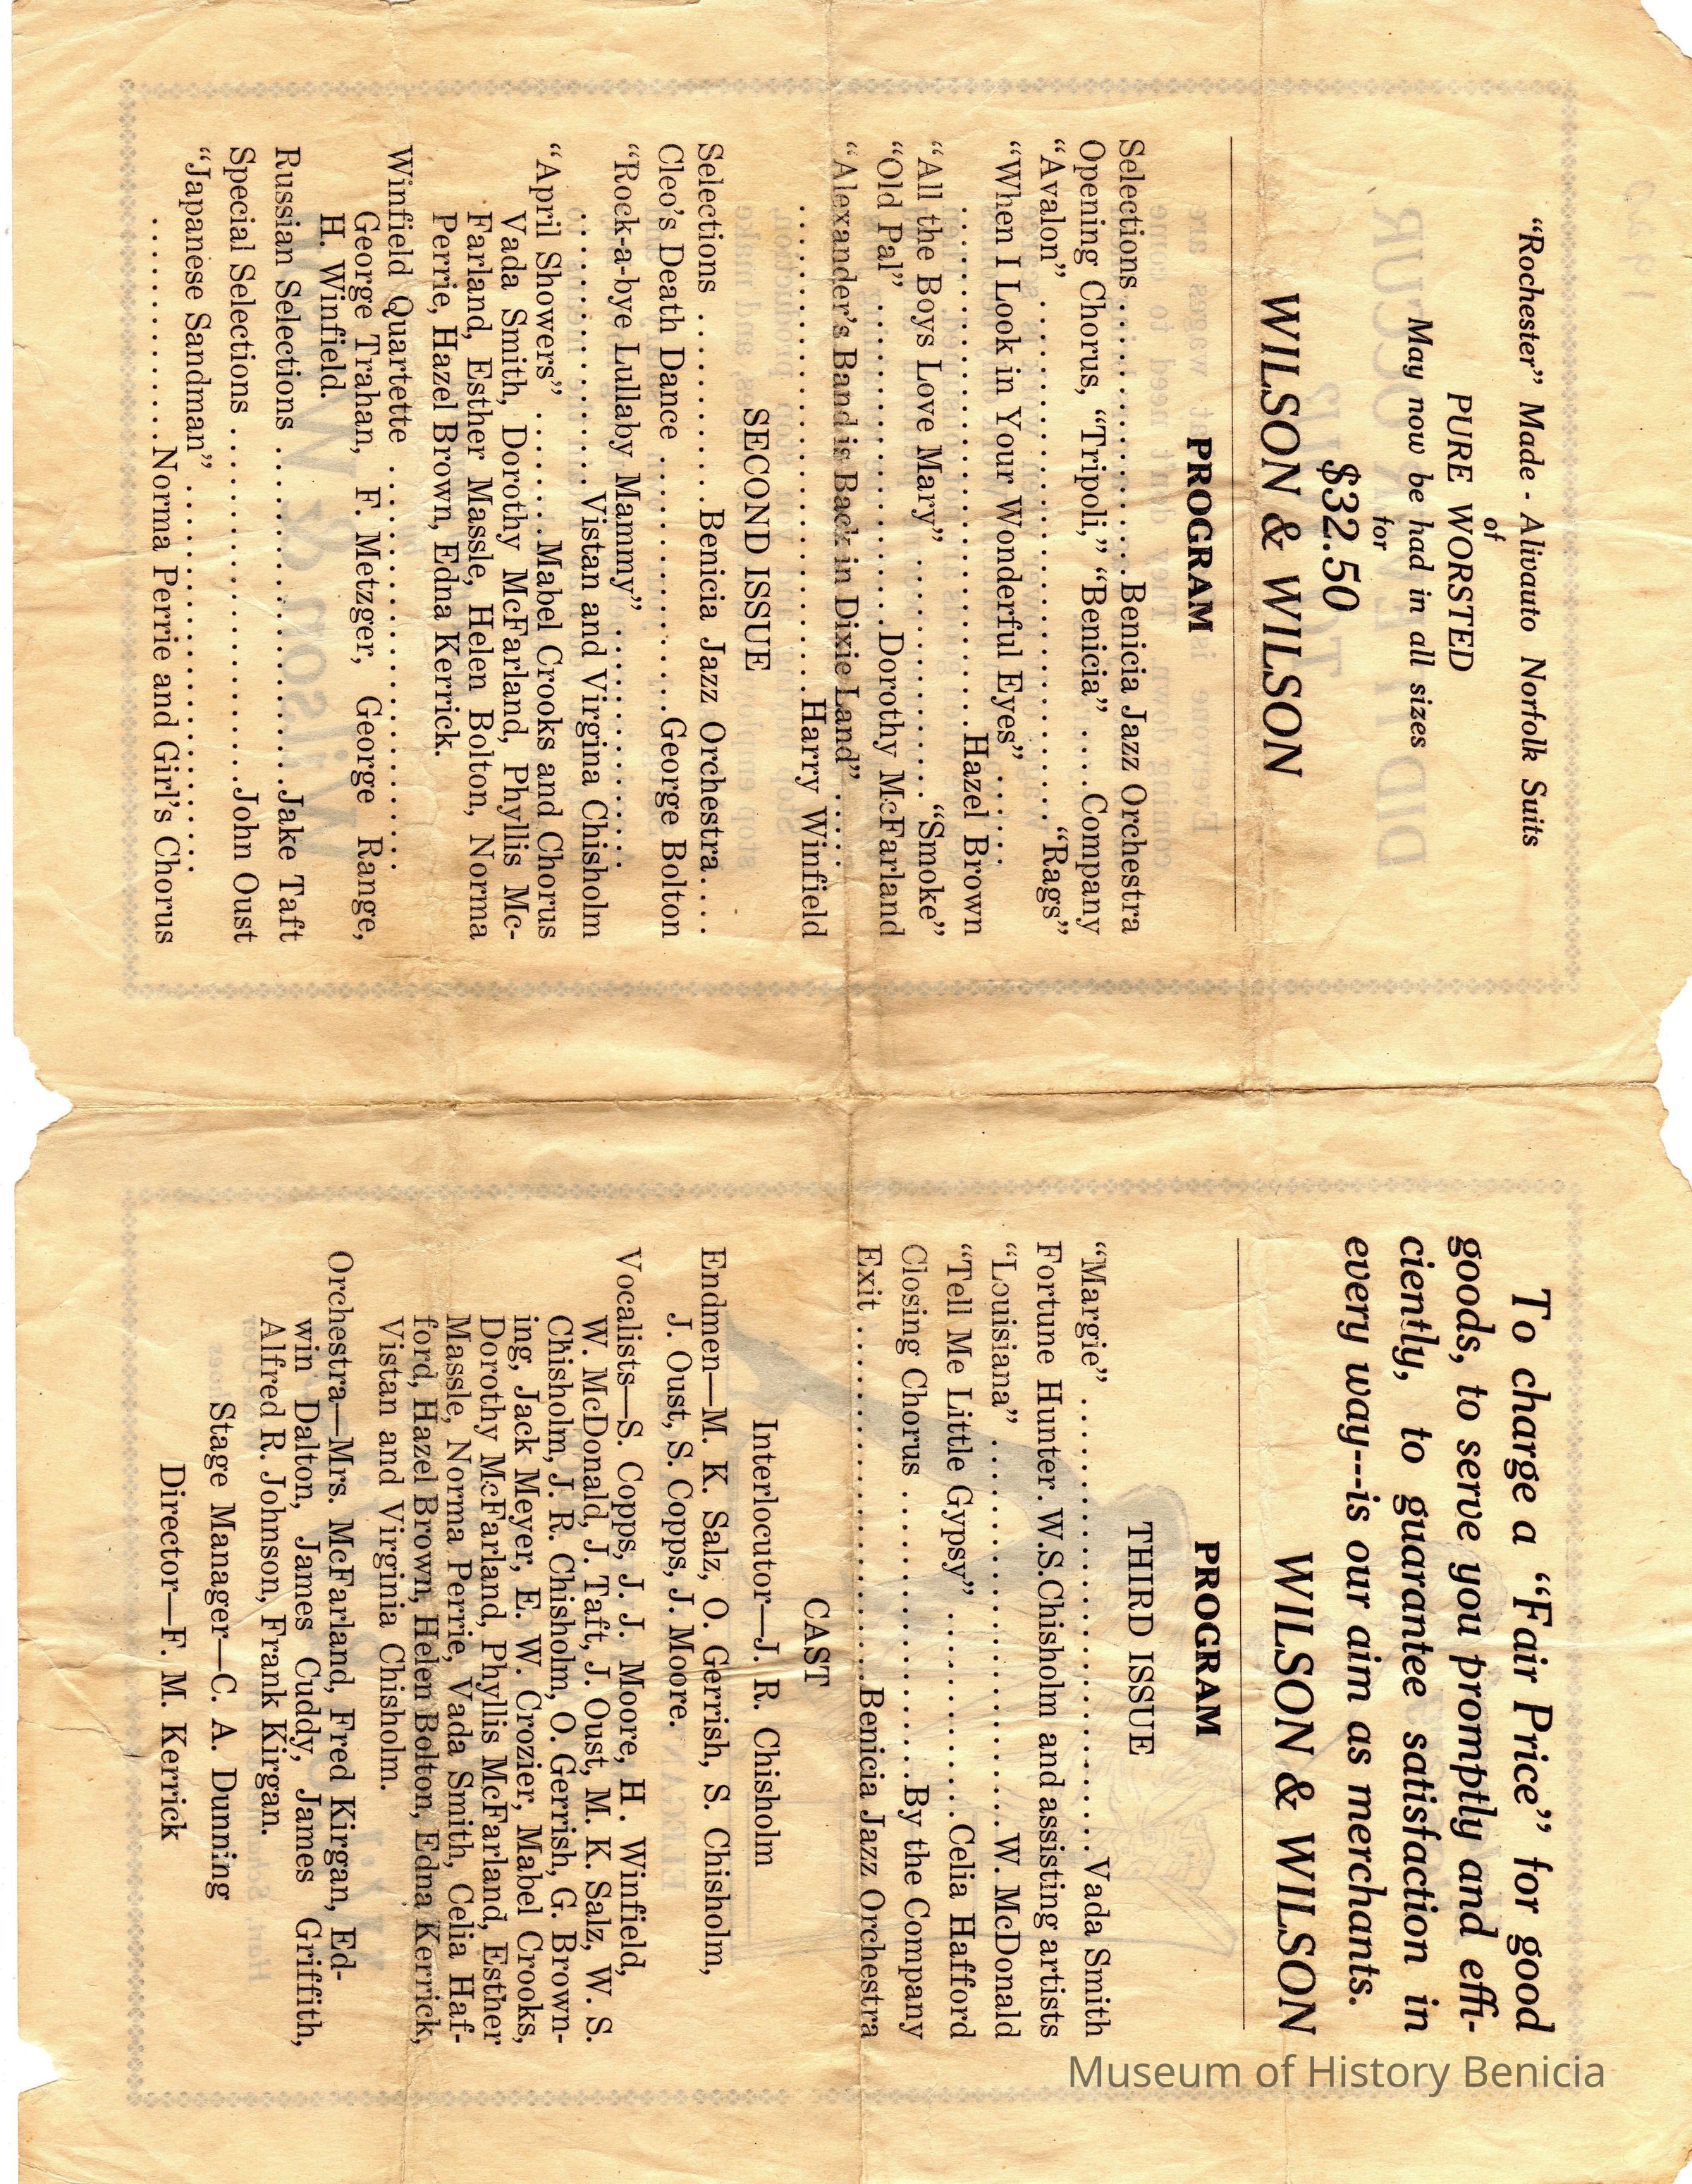 “Rochester” Made - Alivauto Norfolk Suits
of
PURE WORSTED
May now be had in all sizes
for
$32.50
WILSON & WILSON
PROGRAM
Selections ........................Benicia Jazz Orchestra
Opening Chorus, “Tripoli,” “Benicia” ....Company
“Avalon” ................................................“Rags”
“When I Look in Your Wonderful Eyes” .......
................................................Hazel Brown
“All the Boys Love Mary” ......................“Smoke”
“Old Pal” ..............................Dorothy McFarland
“Alexander’s Band is Back in Dixie Land” ......
..............................................Harry Winfield
SECOND ISSUE
Selections ................Benicia Jazz Orchestra....
Cleo’s Death Dance ......................George Bolton
“Rock-a-bye Lullaby Mammy” ......................
........................Vistan and Virgina Chisholm
“April Showers” ..........Mabel Crooks and Chorus
Vada Smith, Dorothy McFarland, Phyllis Mc-
Farland, Esther Massle, Helen Bolton, Norma
Perrie, Hazel Brown, Edna Kerrick.
Winfield Quartette ........................................
George Trahan, F. Metzger, George Range,
H. Winfield.
Russian Selections ..............................Jake Taft
Special Selections ................................John Oust
“Japanese Sandman” ......................................
....................Norma Perrie and Girl’s Chorus
To charge a “Fair Price” for good
goods, to serve you promptly and effi-
ciently, to guarantee satisfaction in
every way---is our aim as merchants.
WILSON & WILSON
PROGRAM
THIRD ISSUE
“Margie” ..........................................Vada Smith
Fortune Hunter..W.S.Chisholm and assisting artists
“Louisiana” ....................................W. McDonald
“Tell Me Little Gypsy” ....................Celia Hafford
Closing Chorus ..........................By the Company
Exit ................................Benicia Jazz Orchestra
CAST
Interlocutor—J. R. Chisholm
Endmen—M. K. Salz, O. Gerrish, S. Chisholm,
J. Oust, S. Copps, J. Moore.
Vocalists—S. Copps, J. J. Moore, H. Winfield,
W. McDonald, J. Taft, J. Oust, M. K. Salz, W. S.
Chisholm, J. R. Chisholm, O. Gerrish, G. Brown-
ing, Jack Meyer, E. W. Crozier, Mabel Crooks,
Dorothy McFarland, Phyllis McFarland, Esther
Massle, Norma Perrie, Vada Smith, Celia Haf-
ford, Hazel Brown, Helen Bolton, Edna Kerrick,
Vistan and Virginia Chisholm.
Orchestra—Mrs. McFarland, Fred Kirgan, Ed-
win Dalton, James Cuddy, James Griffith,
Alfred R. Johnson, Frank Kirgan.
Stage Manager—C. A. Dunning
Director—F. M. Kerrick
Museum of History Benicia